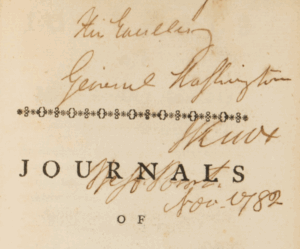 His Excellency
General Washington
JOURNALS
Nov. 1782
OF